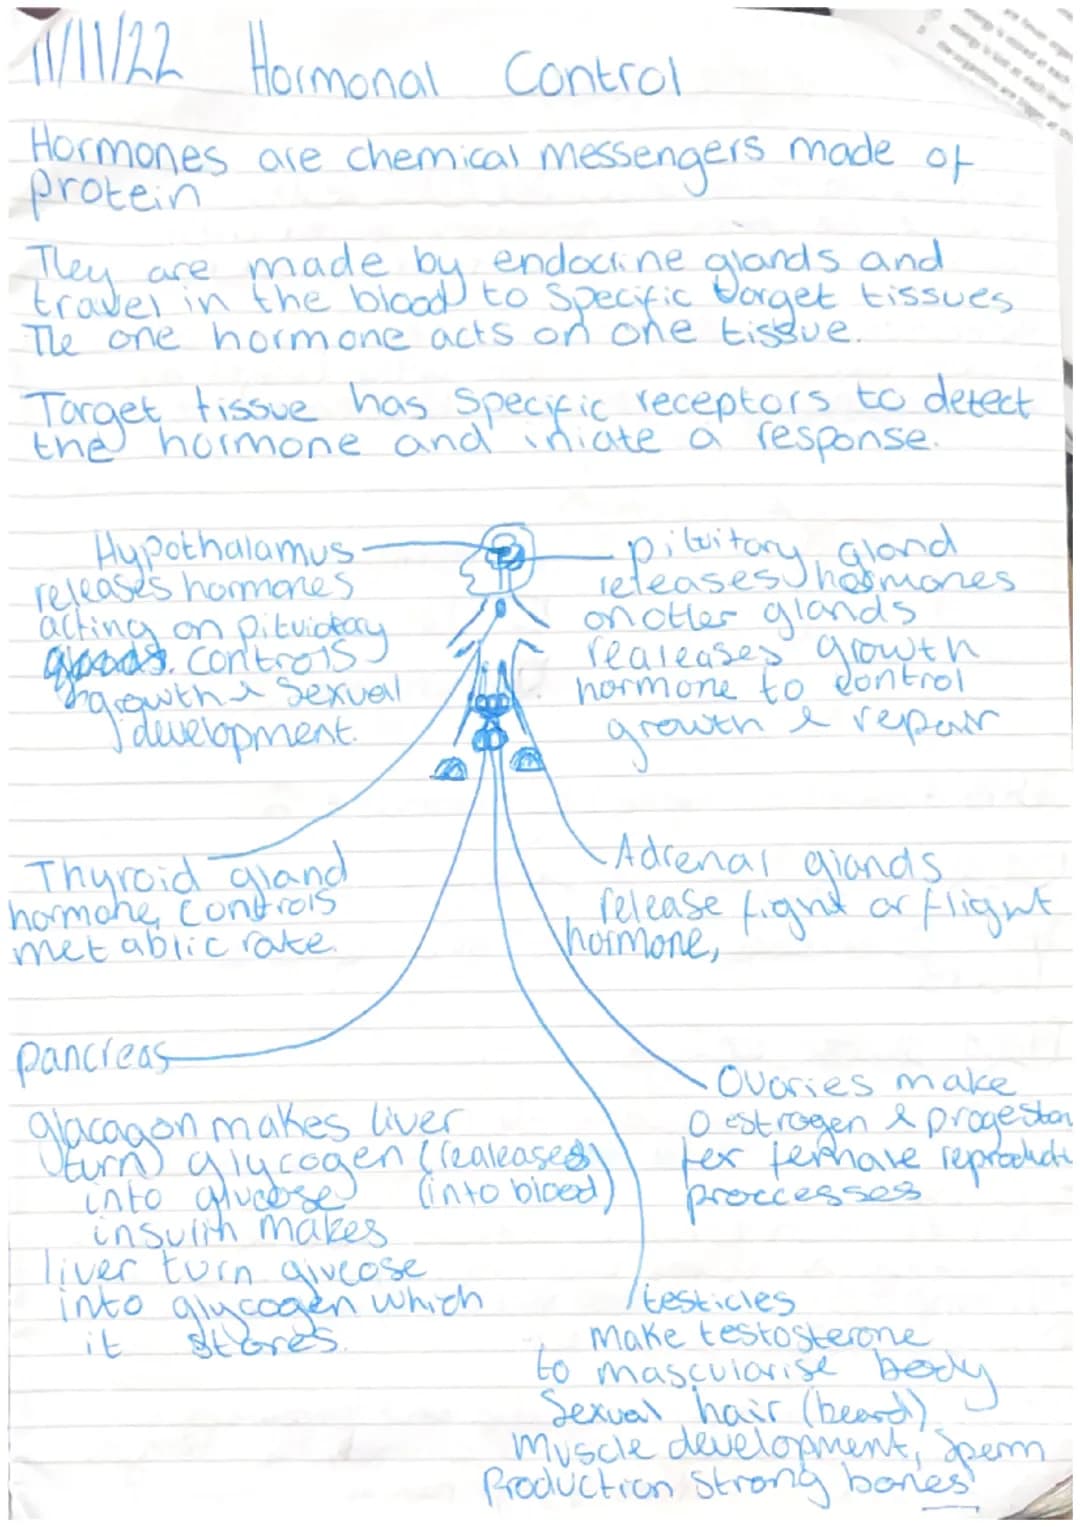 11/11/22 Hormonal Control
Hormones are chemical messengers made of
protein
They are made by endocrine glands and
travel in the blood to specific target tissues
The one hormone acts on one tissue.
Target tissue has specific receptors to detect
the hormone and iniate a response.
Hypothalamus
releases hormones
acting on pituidary
glands. controls
growth & sexual
development.
pituitary gland
releases hormones
on other glands
realeases growth
hormone to control
growth & repair
Thyroid gland
hormone, controls
metablic rate.
Adrenal glands
release fight or flight
hormone,
pancreas
glacagon makes liver
turn glycogen (realeases)
into glucose (into blood)
insulin makes
liver turn glucose
into glycogen which
it stores.
Ovaries make
Oestrogen & progeston
for female reproducti
proccesses
testicles
make testosterone
to mascularise body
sexual hair (beard)
Muscle development, sperm
Production strong bones